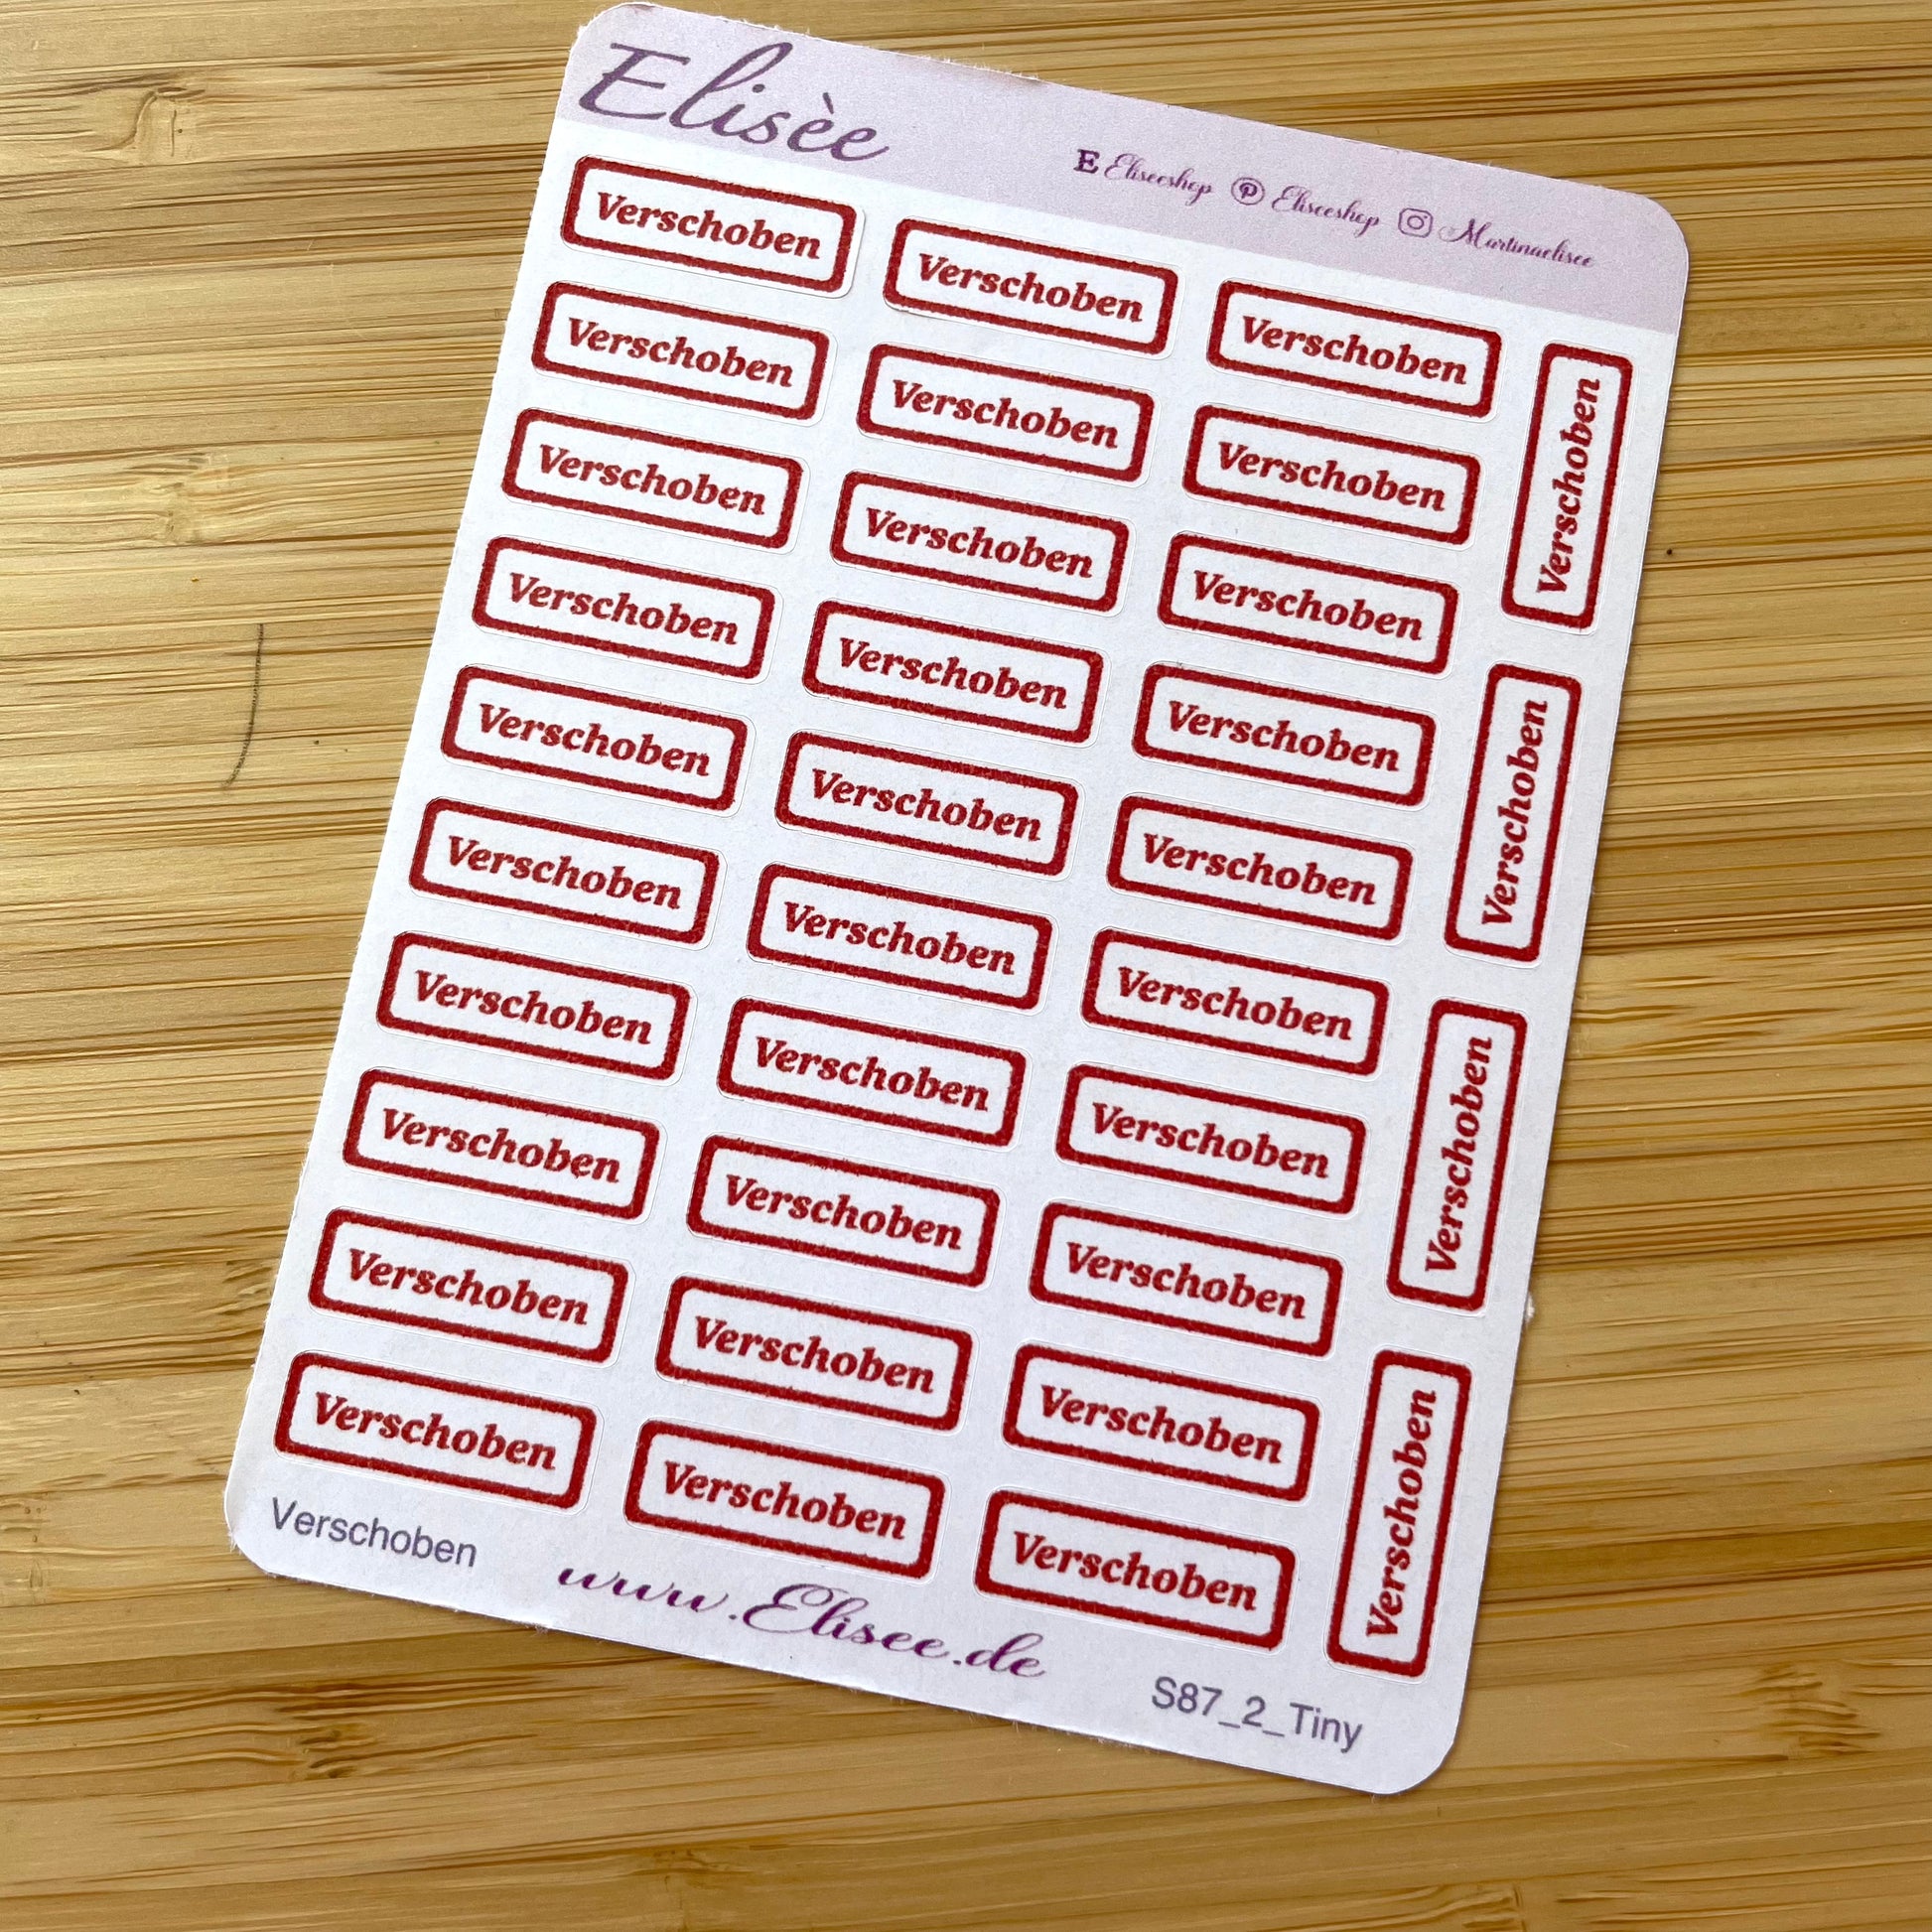 Elisèe
E Eliseeshop Eliseeshop Martinaelisee
Verschoben Verschoben Verschoben
Verschoben Verschoben Verschoben
Verschoben Verschoben Verschoben
Verschoben Verschoben Verschoben
Verschoben Verschoben Verschoben
Verschoben Verschoben Verschoben
Verschoben Verschoben Verschoben
Verschoben Verschoben Verschoben
Verschoben Verschoben Verschoben
Verschoben Verschoben Verschoben
Verschoben
Verschoben
Verschoben
Verschoben
Verschoben
www.Elisee.de
S87_2_Tiny